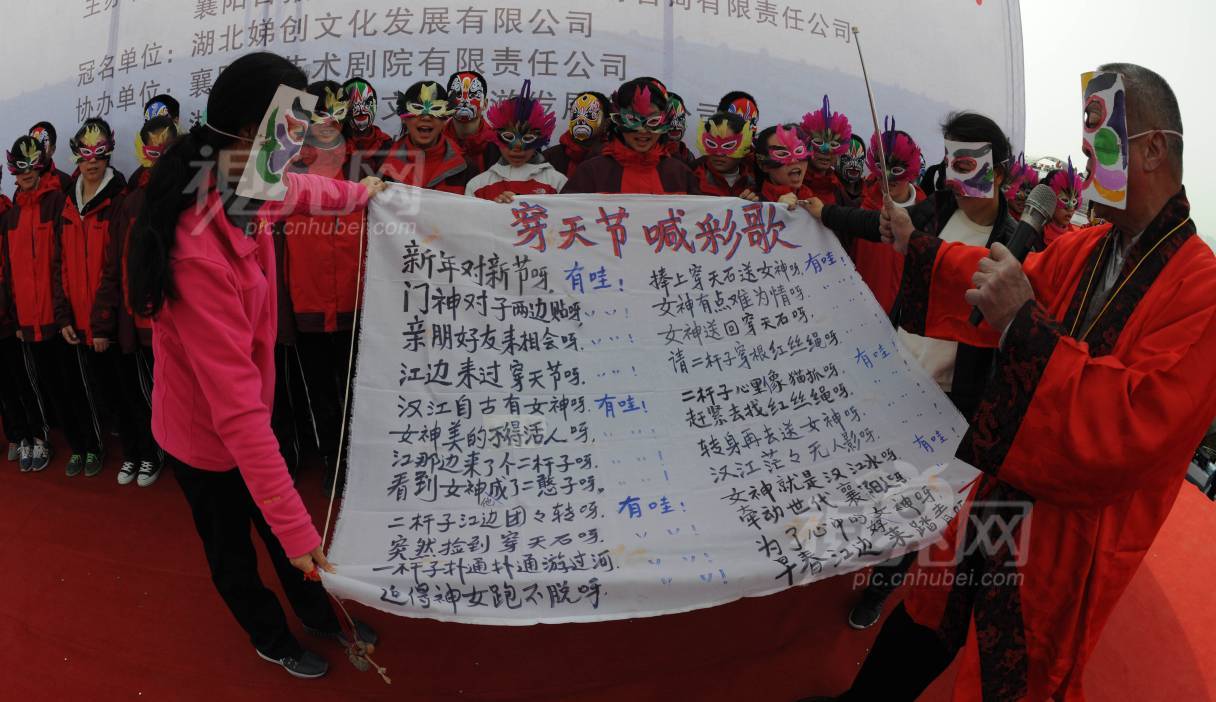 主办
襄阳
有限责任公司
冠名单位：湖北娣创文化发展有限公司
协办单位：襄 艺术剧院有限责任公司
穿天节喊彩歌
新年对新节呀，有哇！
门神对子两边贴呀，〃〃！
亲朋好友来相会呀，〃〃！
江边来过穿天节呀，〃〃！
汉江自古有女神呀，有哇！
女神美的不得活人呀，〃〃
江那边来了个二杆子呀，〃〃！
看到女神成了二憨子呀。〃〃！
他
二杆子江边团々转呀，有哇！
突然捡到穿天石呀，〃〃！
二杆子扑通扑通游过河，〃〃！
追得神女跑不脱呀，〃〃！
捧上穿天石送女神呀，有哇！
女神有点难为情呀，
女神送回穿天石呀，
请二杆子穿根红丝绳呀，
二杆子心里像猫抓呀，有哇！
赶紧去找红丝绳呀，
转身再去送女神呀，
汉江茫々无人影呀，
女神就是汉江水呀，有哇！
牵动世代襄阳呀
为了心中的女神呀
早春江边来踏青呀
视界网
pic.cnhubei.com
视界网
pic.cnhubei.com
视界网
pic.cnhubei.com